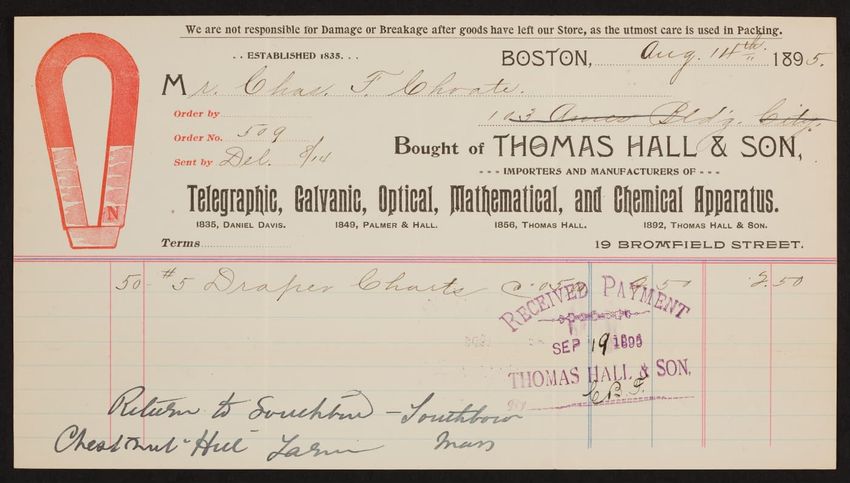 We are not responsible for Damage or Breakage after goods have left our Store, as the utmost care is used in Packing.
. . ESTABLISHED 1835. . .
BOSTON, Aug. 14th 1895.
Mr. Chas. F. Choate.
Order by
103 Ames Bld'g. City.
Order No. 509
Sent by Del. 8/14
Bought of THOMAS HALL & SON,
- - - IMPORTERS AND MANUFACTURERS OF - - -
Telegraphic, Galvanic, Optical, Mathematical, and Chemical Apparatus.
1835, DANIEL DAVIS. 1849, PALMER & HALL. 1856, THOMAS HALL. 1892, THOMAS HALL & SON.
N
Terms
19 BROMFIELD STREET.
50 - #5 Draper Charts @ .05 2.50 2.50
RECEIVED PAYMENT
SEP 19 1895
THOMAS HALL & SON,
Return to Southboro - Southboro
Chestnut Hill Farm Mass